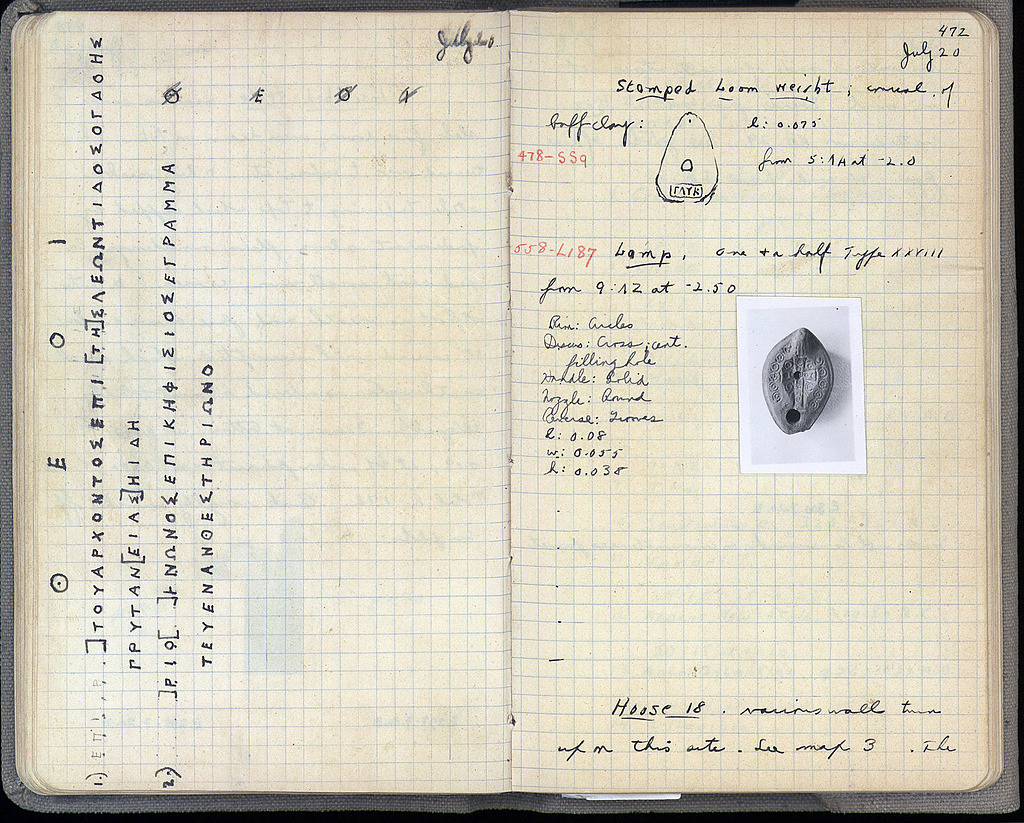 July 20
Θ Ε Ο Ι
Θ Ε Ο Ι
1.) ΕΠΙ...Ρ..]ΤΟΥΑΡΧΟΝΤΟΣΕΠΙ[ΤΗ]ΣΛΕΩΝΤΙΔΟΣΟΓΔΟΗΣ
ΠΡΥΤΑΝ[ΕΙΑΣ]ΗΙΔΗ
2.) ]ΡΙΟ[..]ΙΝΩΝΟΣΕΠΙΚΗΦΙΣΙΟΣΕΓΡΑΜΜΑ
ΤΕΥΕΝΑΝΘΕΣΤΗΡΙΩΝΟ
472
July 20
Stamped Loom weight; conical, of
buff clay:
l: 0.075
478-SS9
from 5:ΛΑ at -2.0
ΓΛΥΚ
558-L187 Lamp, one + a half Type XXVIII
from 9:ΛΖ at -2.50
Rim: Circles
Discus: Cross, cent.
filling hole
Handle: Solid
Nozzle: Round
Reverse: Grooves
l: 0.08
w: 0.055
h: 0.038
House 18. various wall turn
up on this site. See map 3. The